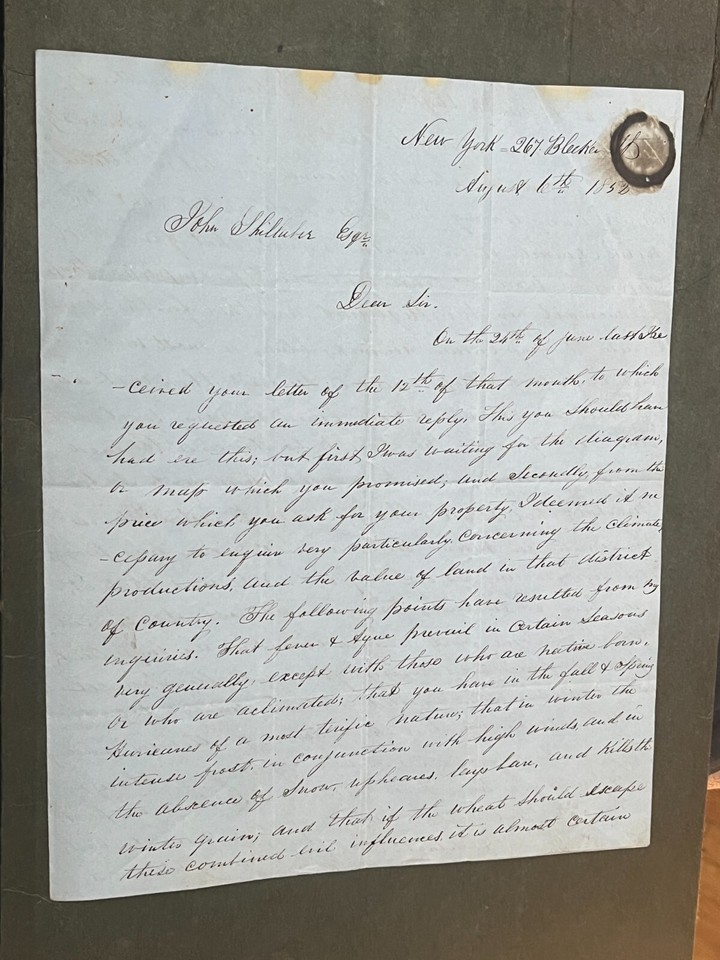 New York 267 Bleeker St
August 6th 185
John Shillaber Esqr
Dear Sir.
On the 24th of june last I re
-ceived your letter of the 12th of that month, to which
you requested an immediate reply. This you should have
had ere this; but first, I was waiting for the diagram,
or map which you promised; and Secondly, from the
price which you ask for your property, I deemed it ne
-cessary to enquire very particularly, Concerning the Climate,
productions, and the value of land in that district
of Country. The following points have resulted from my
inquiries. That fever & Ague prevail in Certain Seasons
very generally, except with those who are native born,
or who are aclimated; that you have in the fall & Spring
Hurricanes of a most terific nature; that in winter the
intense frost, in conjunction with high winds, and in
the abscence of Snow, upheaves, lays bare, and Kills the
winter grain; and that if the wheat should escape
these combined evil influences, it is almost certain